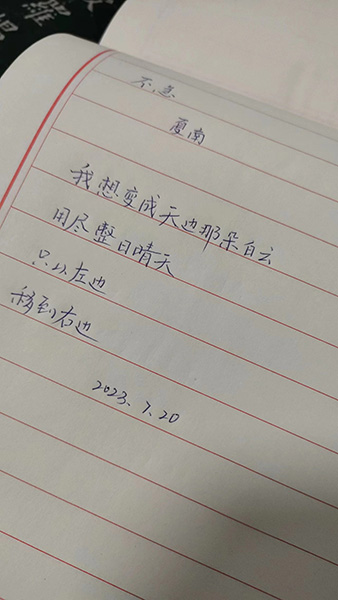 羅
不急
夏南
我想变成天边那朵白云
用尽整日晴天
只从左边
移到右边
2023.7.20